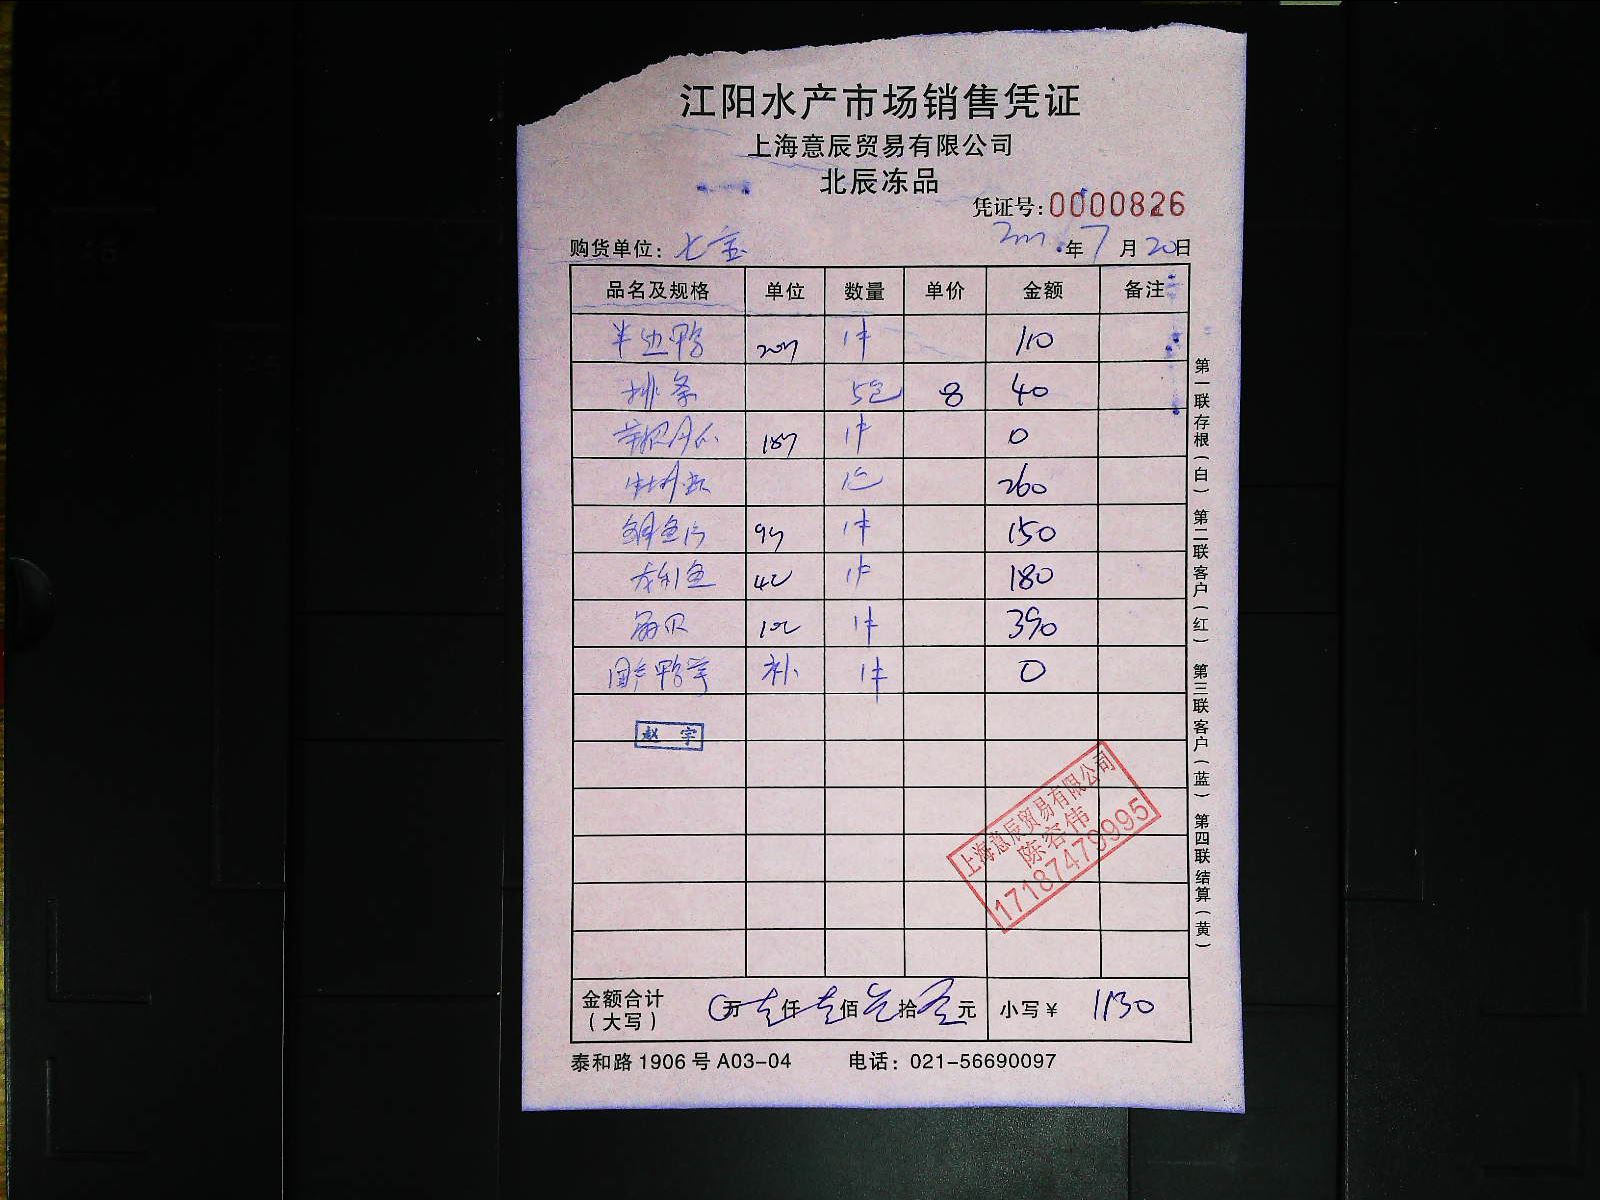 江阳水产市场销售凭证
上海意辰贸易有限公司
北辰冻品
凭证号:0000826
购货单位：七宝 年7月20日
品名及规格 单位 数量 单价 金额 备注
半边鸭 1件 110
排条 5包 8 40
1件 0
260
鲷鱼片 1件 150
龙利鱼 1件 180
扇贝 1件 390
补 1件 0
赵宇
上海意辰贸易有限公司
陈容伟
17187479995
金额合计（大写） 万 仟 佰 拾 元 小写￥ 1130
泰和路1906号A03-04 电话：021-56690097
第一联存根（白） 第二联客户（红） 第三联客户（蓝） 第四联结算（黄）